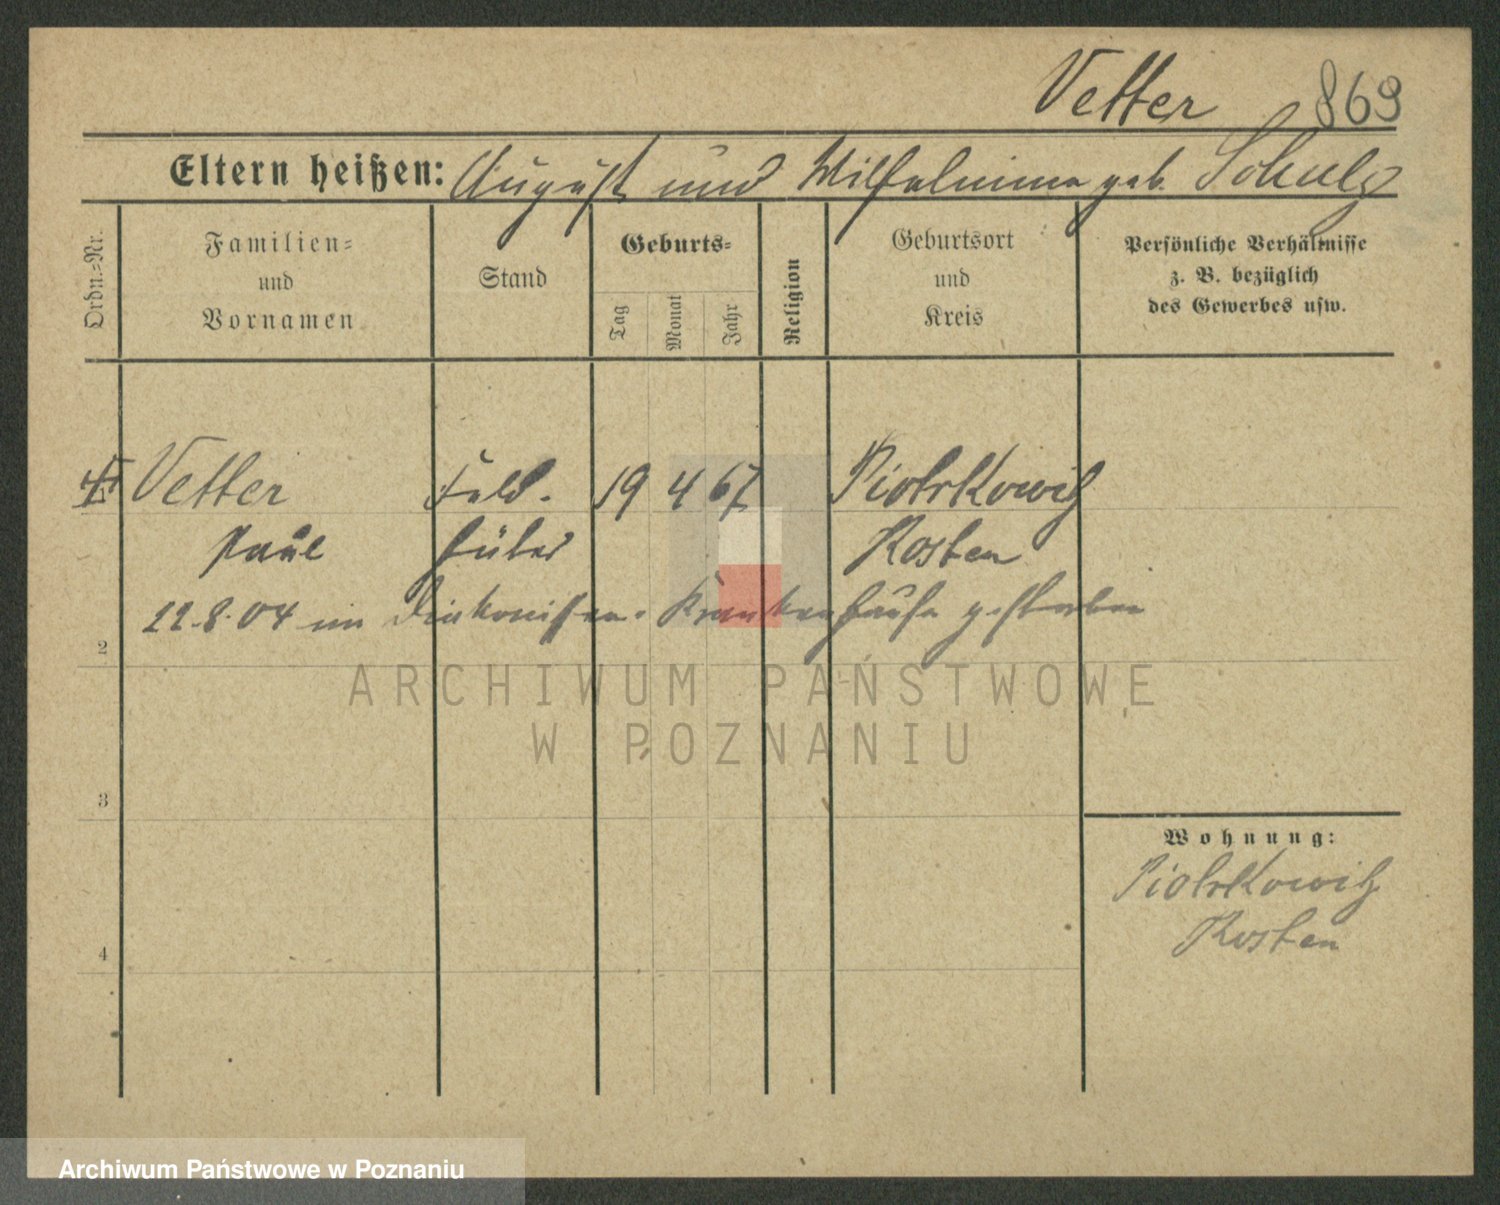 Vetter 869
Eltern heißen: August und Wilhelmina geb. Schulz
Ordn.=Nr.
Familien=
und
Vornamen
Stand
Geburts=
Tag
Monat
Jahr
Religion
Geburtsort
und
Kreis
Persönliche Verhältnisse
z. B. bezüglich
des Gewerbes usw.
Vetter Feld- 19 4 67 Piotrkowitz
Paul hüter Kosten
22.8.04 im Diakonissen-Krankenhause gestorben
2
ARCHIWUM PAŃSTWOWE
W POZNANIU
3
Wohnung:
Piotrkowitz
Kosten
4
Archiwum Państwowe w Poznaniu